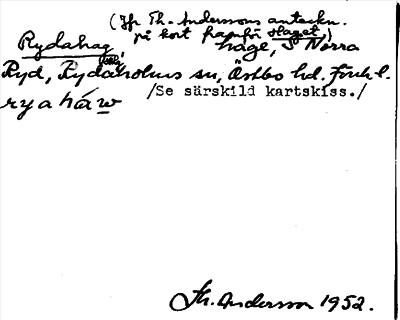 (Jfr Th. Anderssons anteckn.
på kort framför Haget)
Rydahag, hage, S Norra
Ryd, Rydaholms sn, Östbo hd. Jönk. l.
/Se särskild kartskiss./
Th. Andersson 1952.